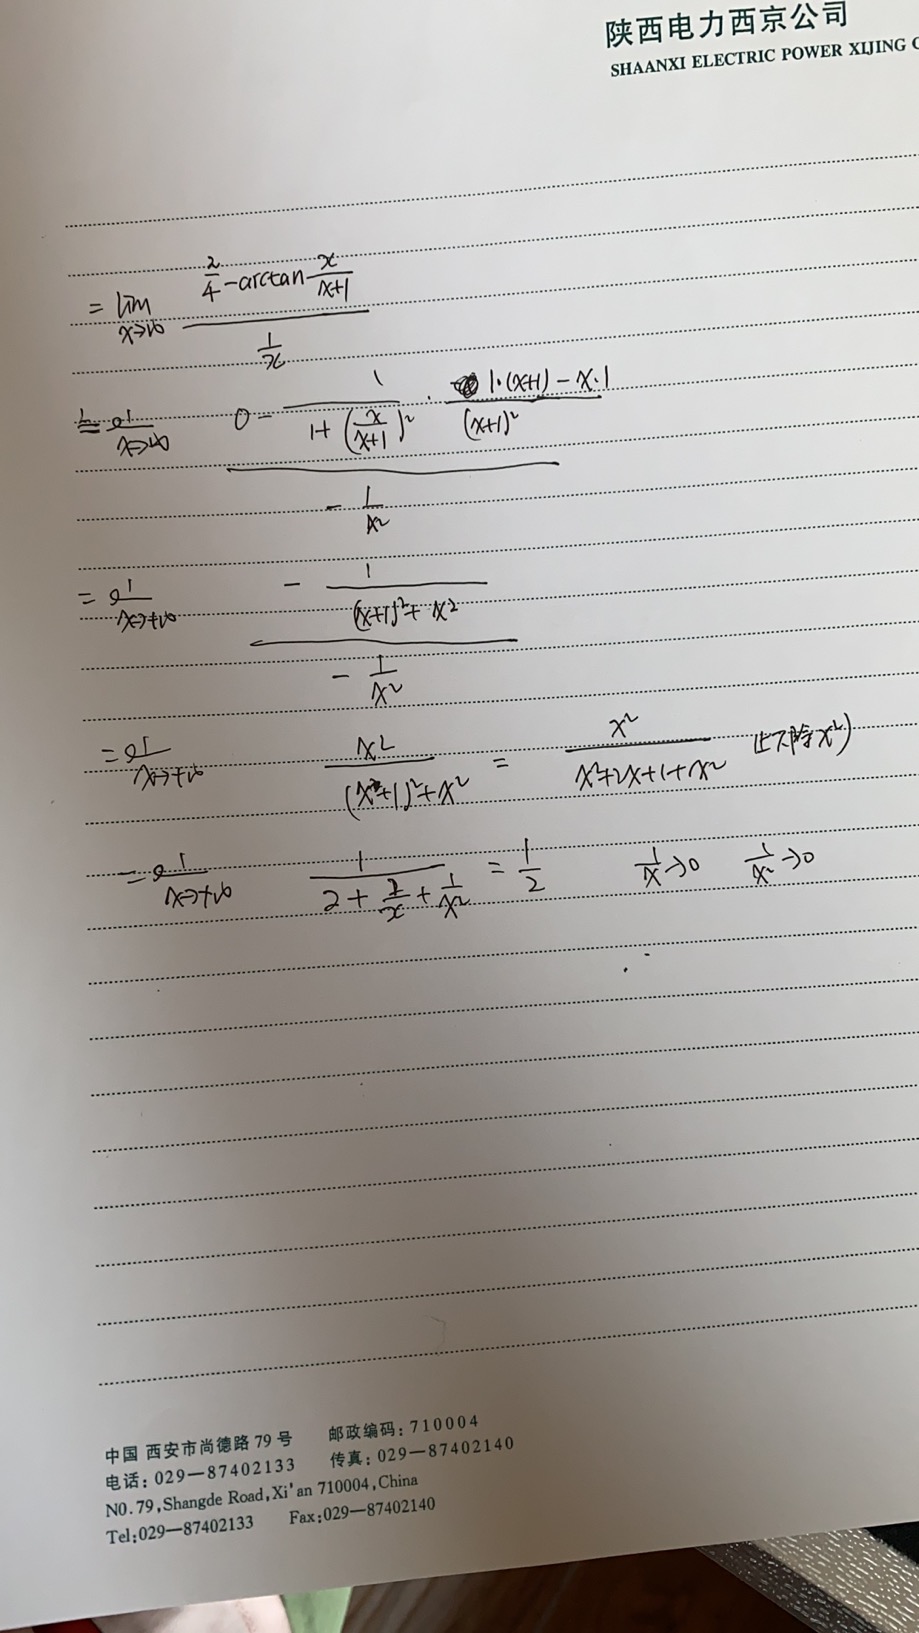 陕西电力西京公司
SHAANXI ELECTRIC POWER XIJING
= lim x→∞ (π/4 - arctan x/(x+1)) / (1/x)
= lim x→∞ (0 - 1/(1+(x/(x+1))²) · (1·(x+1) - x·1)/(x+1)²) / (-1/x²)
= lim x→+∞ (- 1/((x+1)²+x²)) / (-1/x²)
= lim x→+∞ x²/((x+1)²+x²) = x²/(x²+2x+1+x²) (上下除x²)
= lim x→+∞ 1/(2+2/x+1/x²) = 1/2 1/x→0 1/x²→0
中国 西安市尚德路79号 邮政编码:710004
电话:029—87402133 传真:029—87402140
NO.79,Shangde Road,Xi'an 710004,China
Tel:029—87402133 Fax:029—87402140